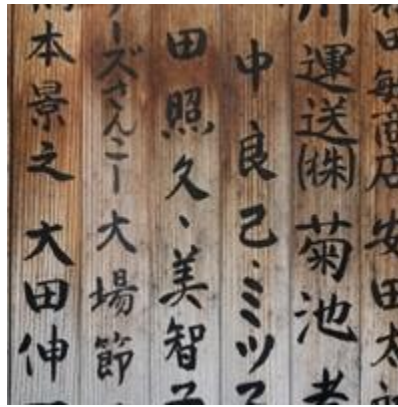 田毎商店 安田太
川運送㈱ 菊池
中良己・ミツ
田照久、美智
ーズさんこー 大場節
本景之 大田伸